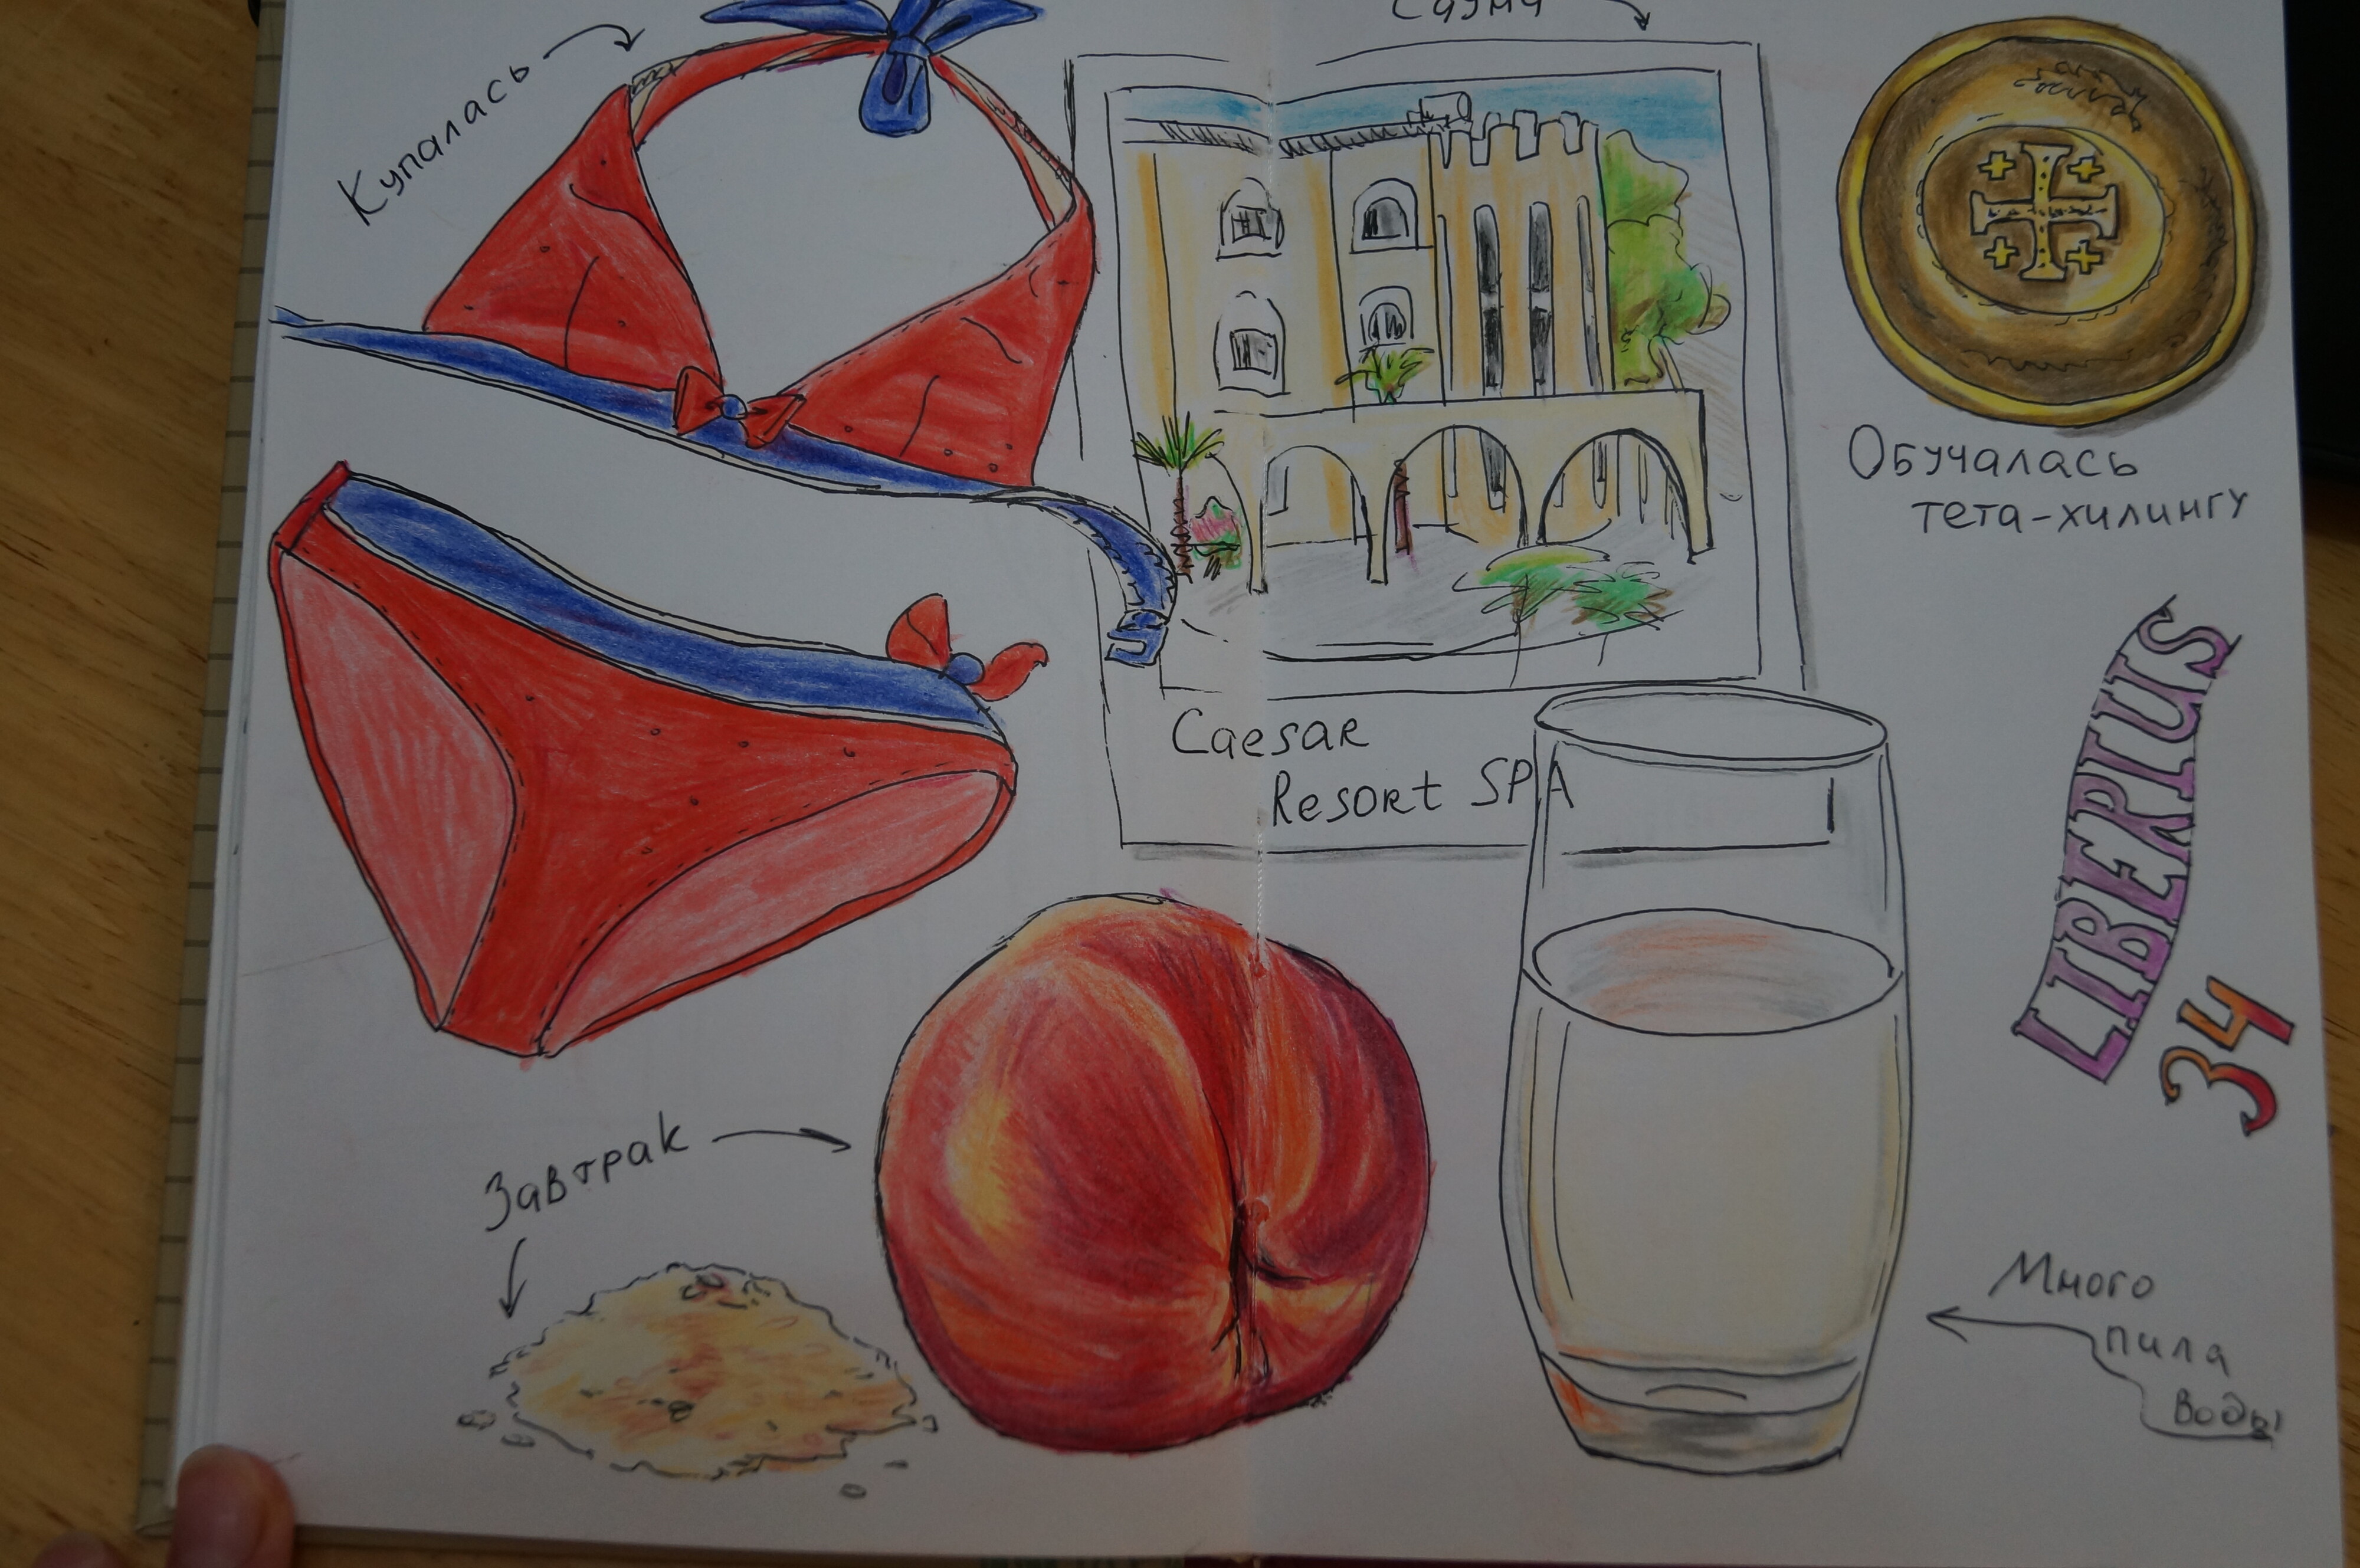 Сауна
Купалась
Обучалась
тета-хилингу
Caesar
Resort SPA
LIBERIUS
34
Завтрак
Много
пила
воды